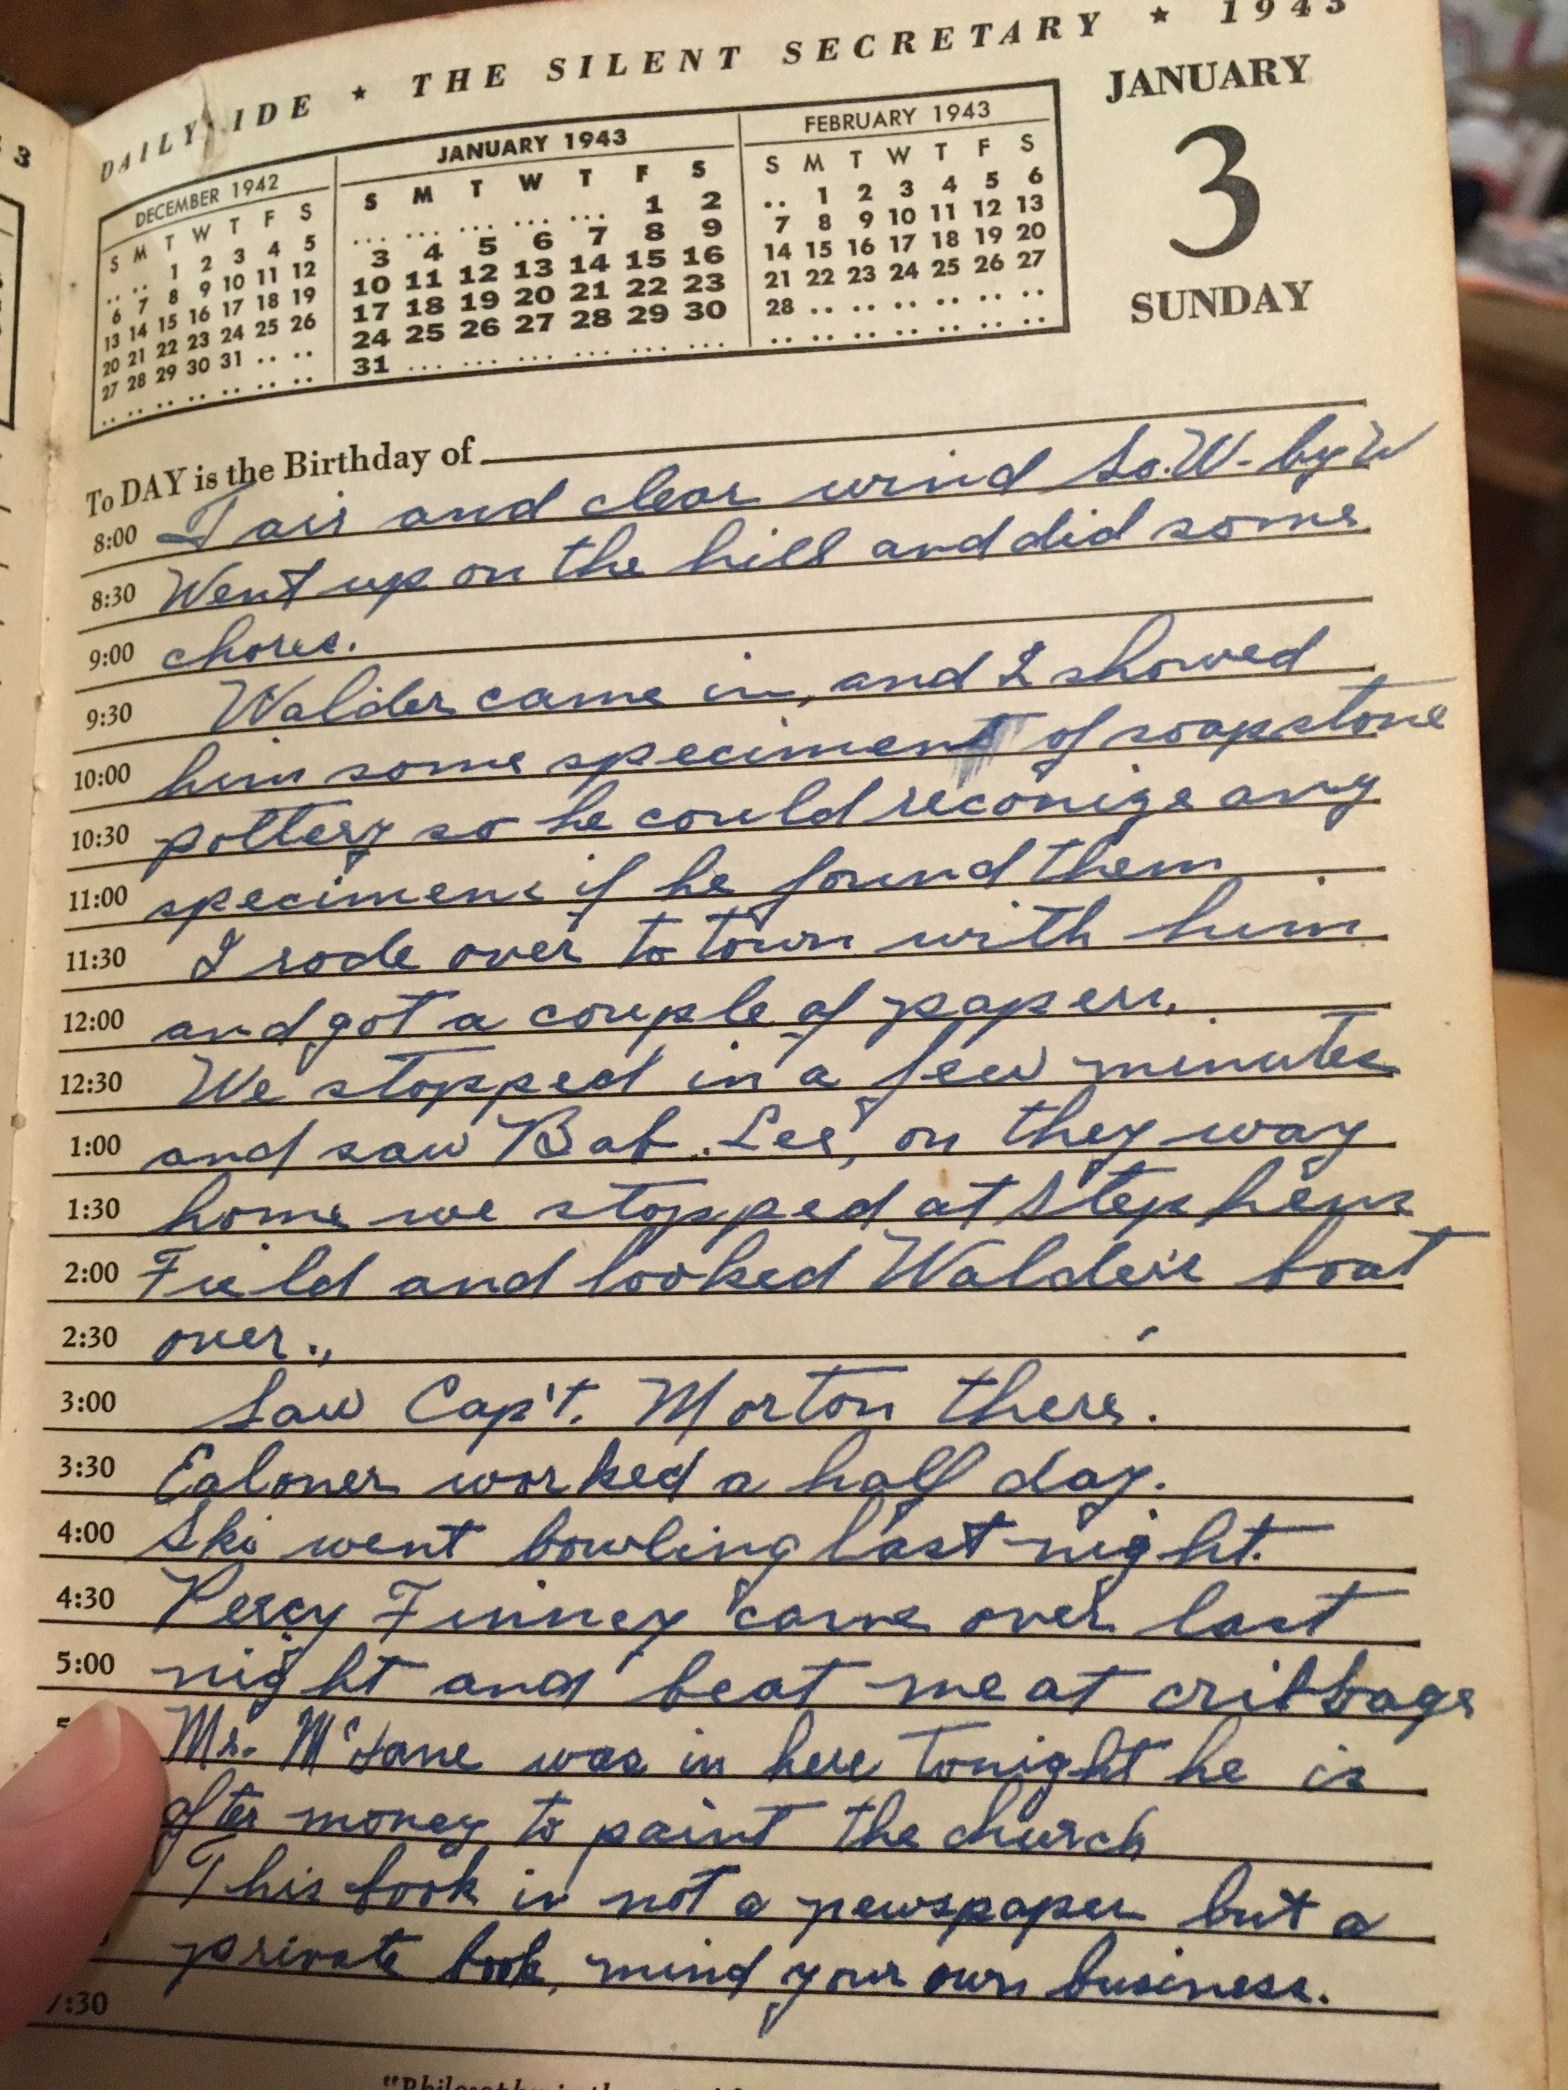 3
DAILY IDE ★ THE SILENT SECRETARY ★ 1943
JANUARY
3
SUNDAY
DECEMBER 1942
S M T W T F S
.. .. 1 2 3 4 5
6 7 8 9 10 11 12
13 14 15 16 17 18 19
20 21 22 23 24 25 26
27 28 29 30 31 .. ..
.. .. .. .. .. .. ..
JANUARY 1943
S M T W T F S
... ... ... ... ... 1 2
3 4 5 6 7 8 9
10 11 12 13 14 15 16
17 18 19 20 21 22 23
24 25 26 27 28 29 30
31 ... ... ... ... ... ...
FEBRUARY 1943
S M T W T F S
.. 1 2 3 4 5 6
7 8 9 10 11 12 13
14 15 16 17 18 19 20
21 22 23 24 25 26 27
28 .. .. .. .. .. ..
.. .. .. .. .. .. ..
To DAY is the Birthday of
8:00 Fair and clear wind So.W- by W
8:30 Went up on the hill and did some
9:00 chores.
9:30 Walder came in, and I showed
10:00 him some speciment of soapstone
10:30 pottery so he could reconize any
11:00 specimens if he found them
11:30 I rode over to town with him
12:00 and got a couple of papers.
12:30 We stopped in a few minutes
1:00 and saw Bab. Lee, on they way
1:30 home we stopped at Stephens
2:00 Field and looked Walder's boat
2:30 over.,
3:00 Saw Cap't. Morton there.
3:30 Ealoner worked a half day.
4:00 Ski went bowling last night.
4:30 Percy Finney came over last
5:00 night and beat me at cribbage
5 Mr. was in here tonight he is
after money to paint the church
This book is not a newspaper but a
private book, mind your own business.
7:30